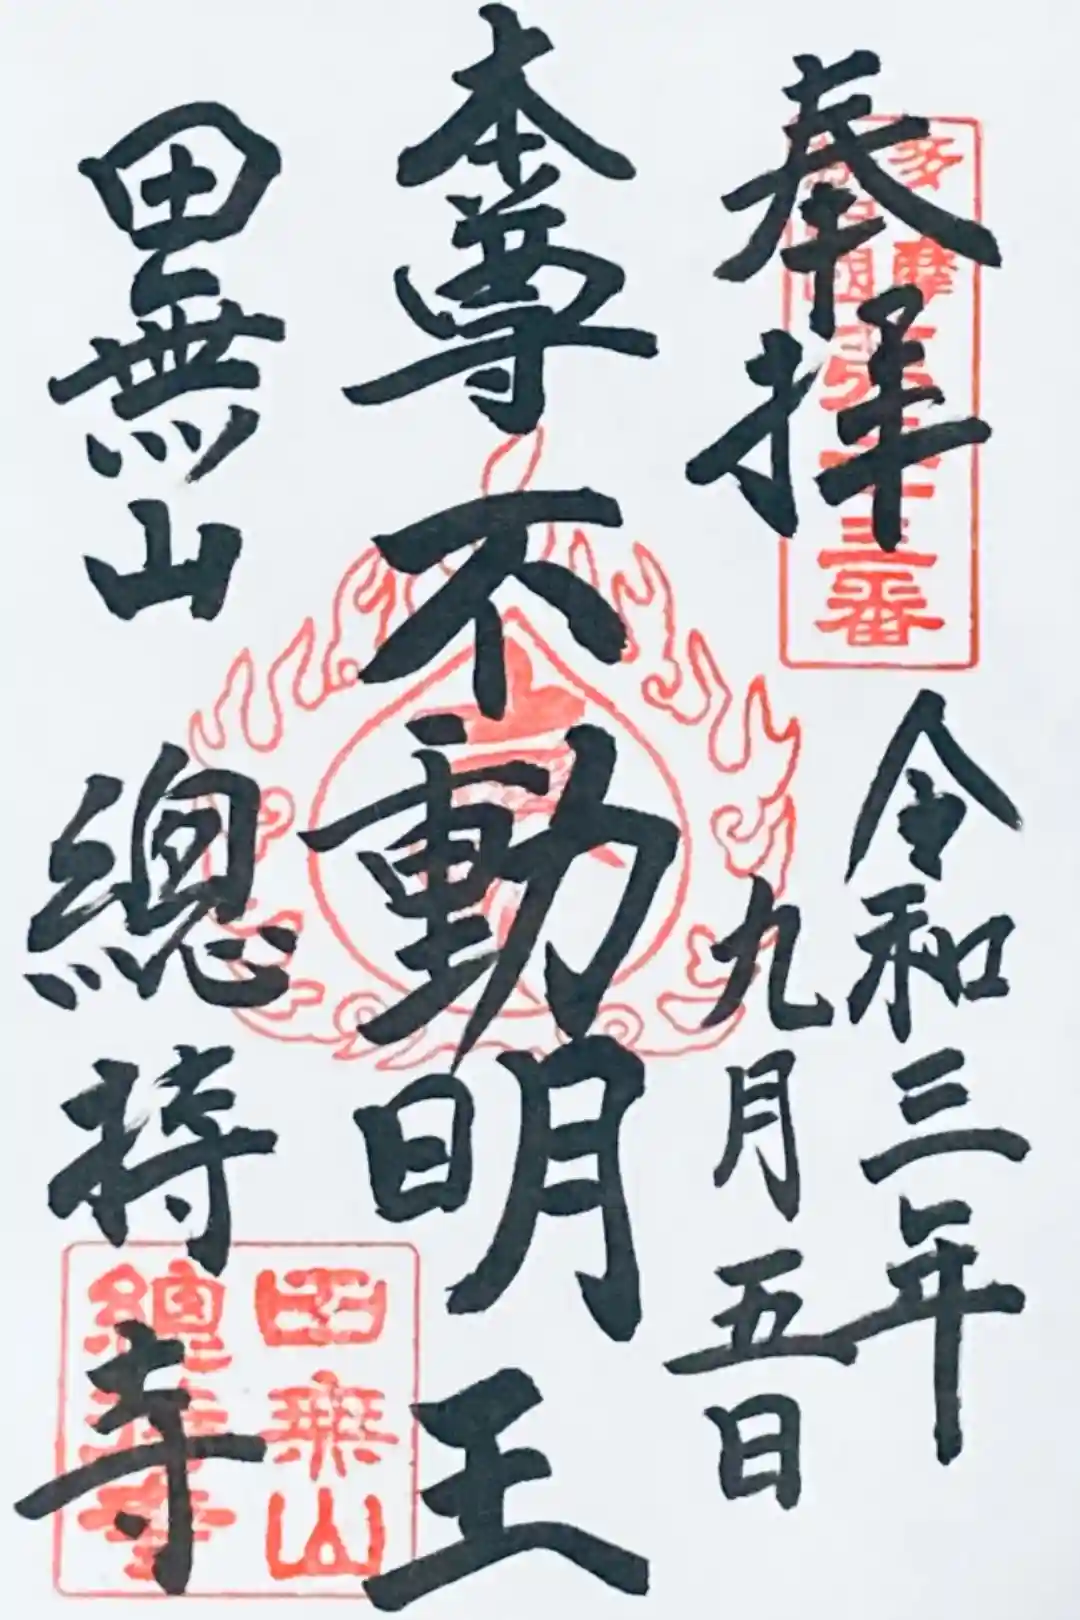 奉拝
令和三年
九月五日
本尊不動明王
田無山 總持寺
多摩
番
田無山
總持寺